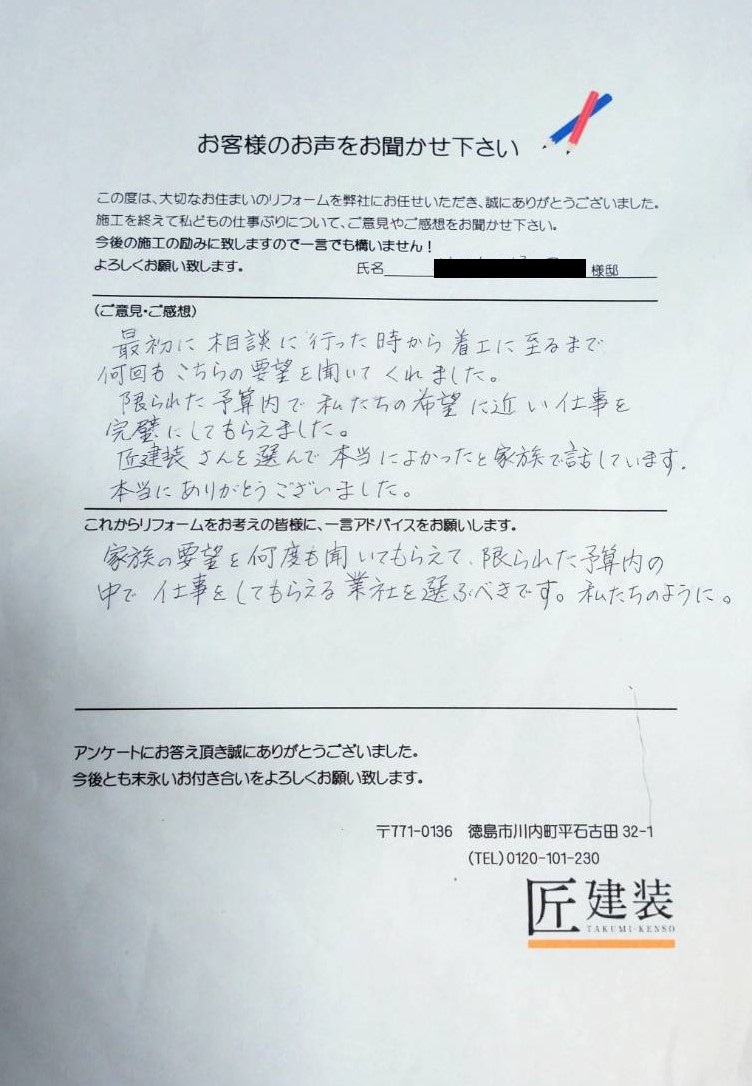 お客様のお声をお聞かせ下さい
この度は、大切なお住まいのリフォームを弊社にお任せいただき、誠にありがとうございました。
施工を終えて私どもの仕事ぶりについて、ご意見やご感想をお聞かせ下さい。
今後の施工の励みに致しますので一言でも構いません！
よろしくお願い致します。 氏名 様邸
（ご意見・ご感想）
最初に相談に行った時から着工に至るまで
何回もこちらの要望を聞いてくれました。
限られた予算内で私たちの希望に近い仕事を
完璧にしてもらえました。
匠建装さんを選んで本当によかったと家族で話しています.
本当にありがとうございました。
これからリフォームをお考えの皆様に、一言アドバイスをお願いします。
家族の要望を何度も聞いてもらえて、限られた予算内の
中で仕事をしてもらえる業社を選ぶべきです。私たちのように。
アンケートにお答え頂き誠にありがとうございました。
今後とも末永いお付き合いをよろしくお願い致します。
〒771-0136 徳島市川内町平石古田 32-1
(TEL)0120-101-230
匠建装
TAKUMI-KENSO